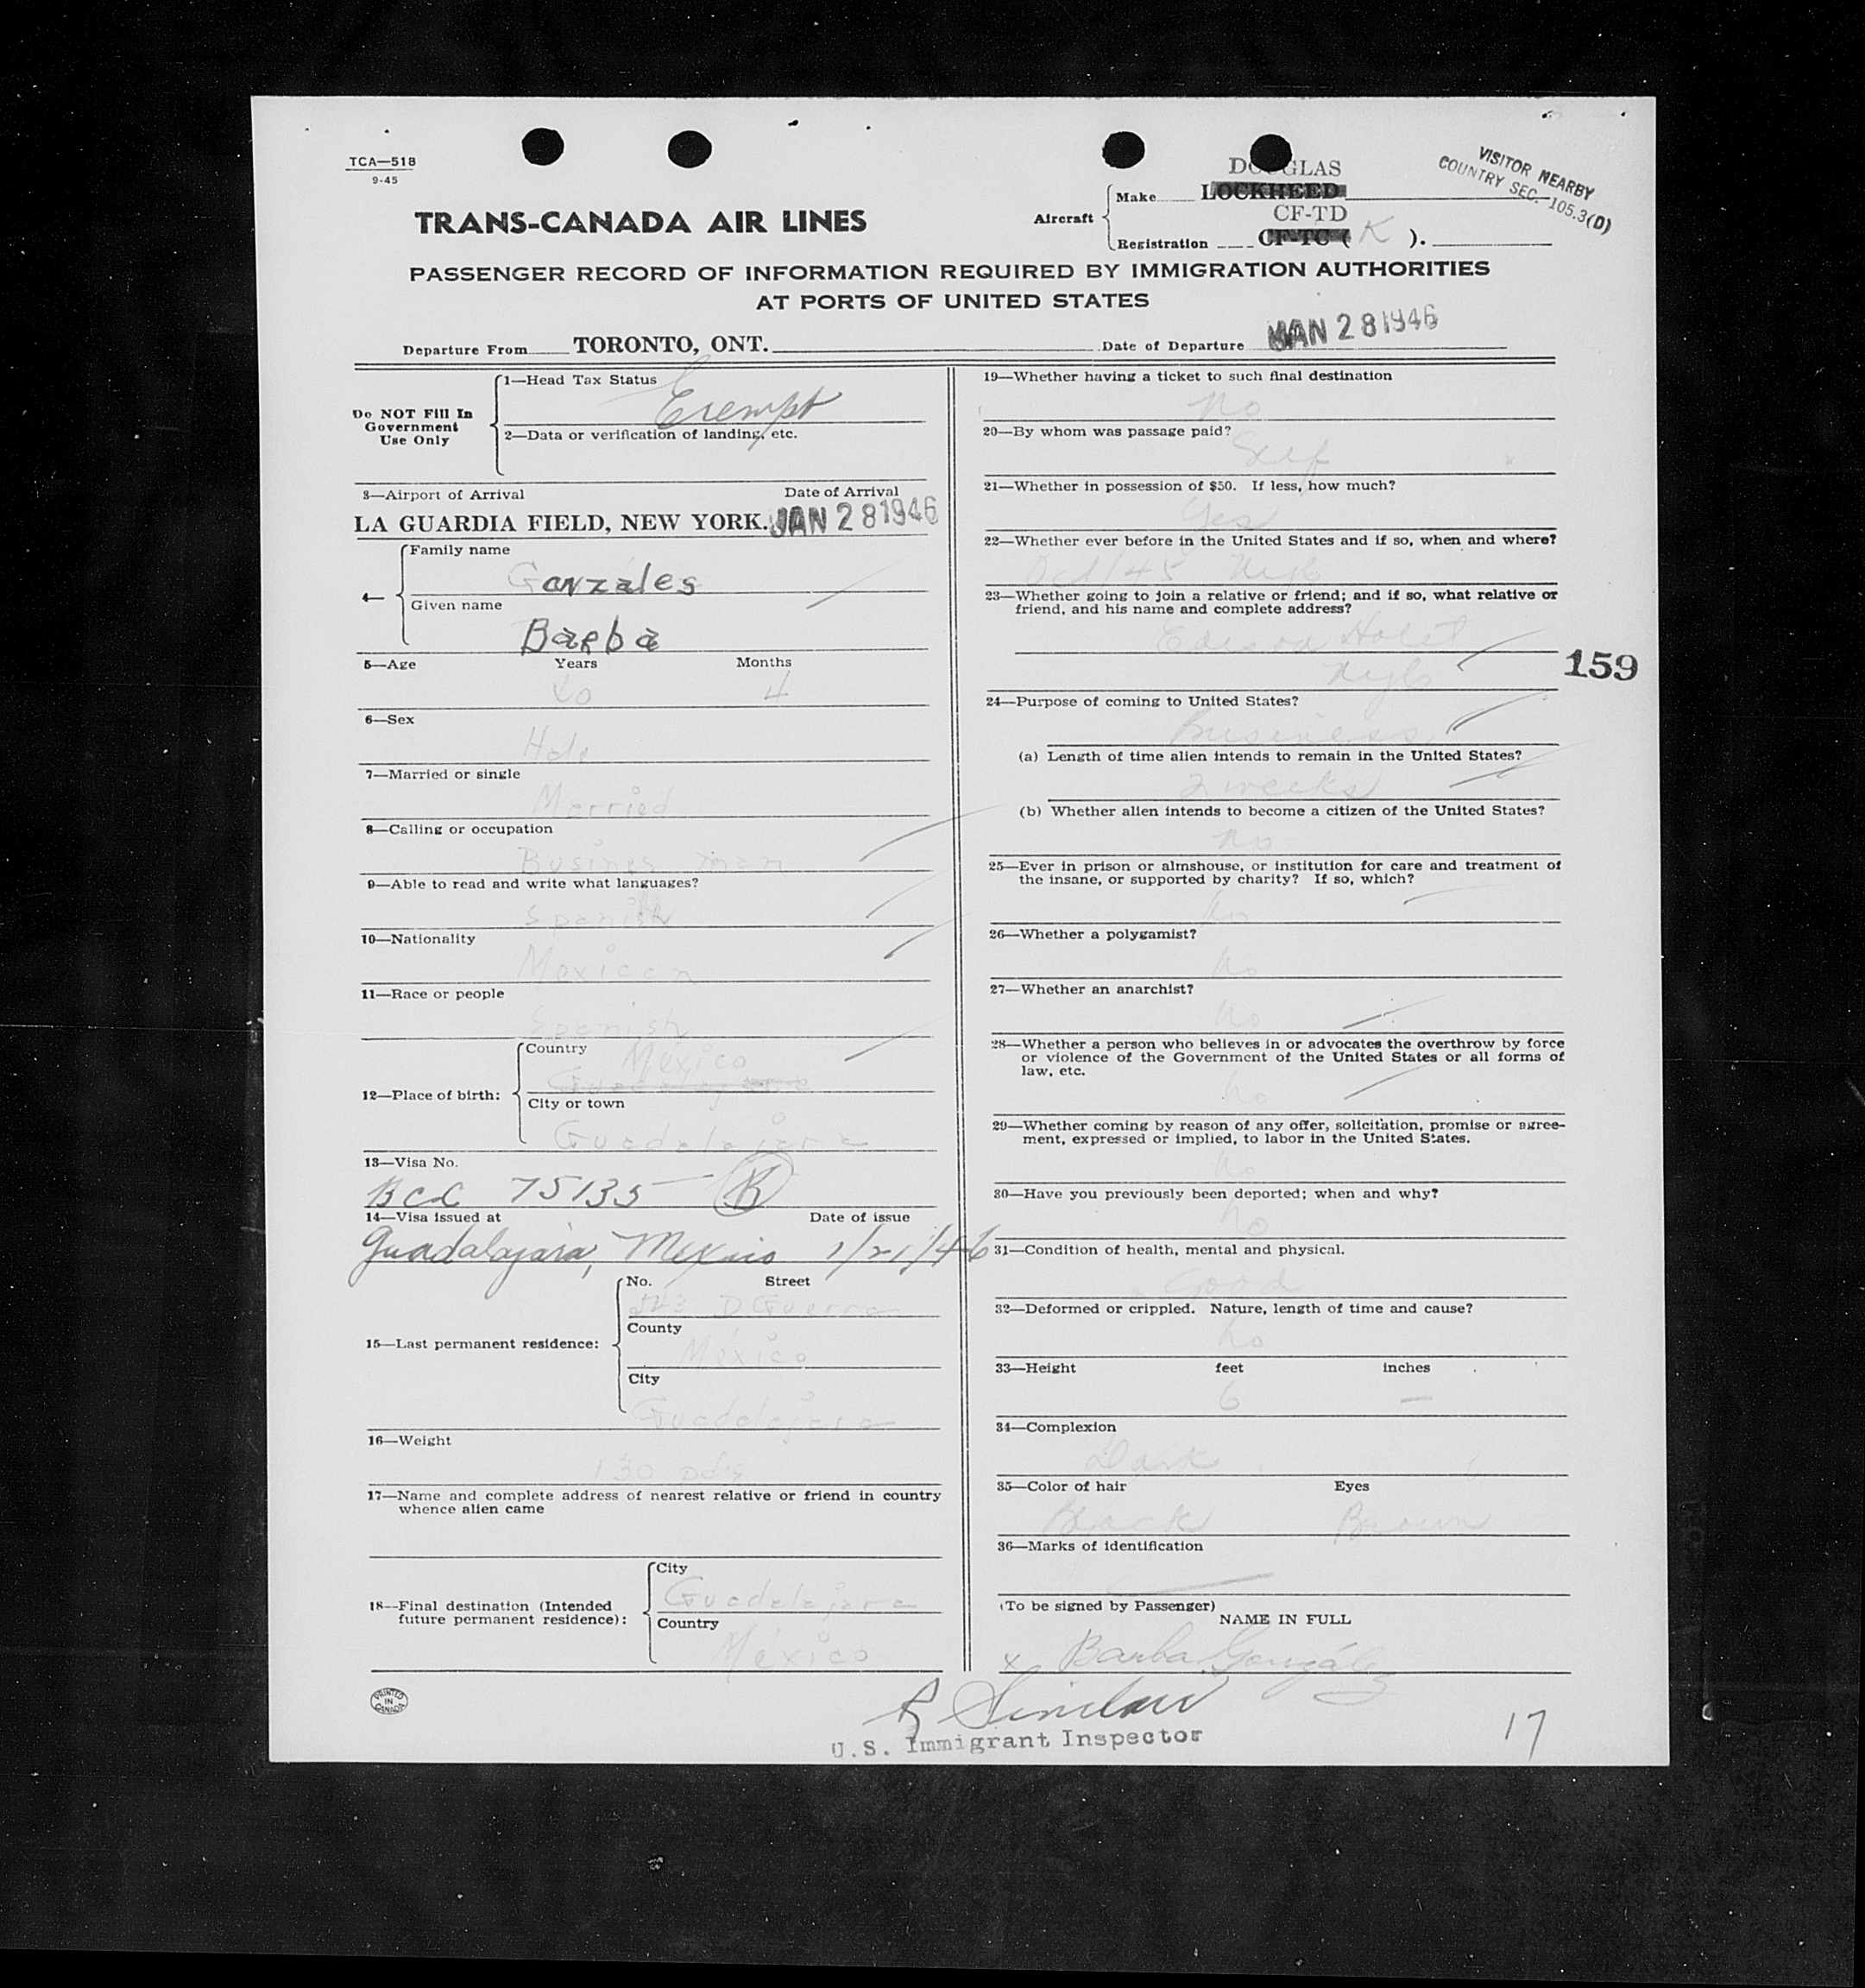 TCA—518
9-45
DOUGLAS
VISITOR NEARBY
COUNTRY SEC. 105.3(D)
Aircraft
Make LOCKHEED
CF-TD
Registration CF-TC ( K ).
TRANS-CANADA AIR LINES
PASSENGER RECORD OF INFORMATION REQUIRED BY IMMIGRATION AUTHORITIES
AT PORTS OF UNITED STATES
Departure From TORONTO, ONT. Date of Departure JAN 28 1946
Do NOT Fill In
Government
Use Only
1—Head Tax Status
Exempt
2—Data or verification of landing, etc.
3—Airport of Arrival Date of Arrival
LA GUARDIA FIELD, NEW YORK. JAN 28 1946
4— Family name
Gonzales
Given name
Barba
5—Age Years Months
4
6—Sex
7—Married or single
Married
8—Calling or occupation
Busines man
9—Able to read and write what languages?
Spanish
10—Nationality
Mexican
11—Race or people
Spanish
12—Place of birth:
Country
Mexico
Guadalajara
City or town
Guadalajara
13—Visa No.
BCC 75135 — R
14—Visa issued at Date of issue
Guadalajara, Mexico 1/21/46
15—Last permanent residence:
No. Street
D Guerra
County
Mexico
City
Guadalajara
16—Weight
130 pds
17—Name and complete address of nearest relative or friend in country
whence alien came
18—Final destination (Intended
future permanent residence):
City
Guadalajara
Country
Mexico
PRINTED
IN
CANADA
19—Whether having a ticket to such final destination
no
20—By whom was passage paid?
Self
21—Whether in possession of $50. If less, how much?
Yes
22—Whether ever before in the United States and if so, when and where?
Oct/45
23—Whether going to join a relative or friend; and if so, what relative or
friend, and his name and complete address?
159
24—Purpose of coming to United States?
Business
(a) Length of time alien intends to remain in the United States?
2 weeks
(b) Whether alien intends to become a citizen of the United States?
no
25—Ever in prison or almshouse, or institution for care and treatment of
the insane, or supported by charity? If so, which?
no
26—Whether a polygamist?
no
27—Whether an anarchist?
no
28—Whether a person who believes in or advocates the overthrow by force
or violence of the Government of the United States or all forms of
law, etc.
no
29—Whether coming by reason of any offer, solicitation, promise or agree-
ment, expressed or implied, to labor in the United States.
no
30—Have you previously been deported; when and why?
no
31—Condition of health, mental and physical.
Good
32—Deformed or crippled. Nature, length of time and cause?
no
33—Height feet inches
6 —
34—Complexion
Dark
35—Color of hair Eyes
Black Brown
36—Marks of identification
(To be signed by Passenger)
NAME IN FULL
x Barba González
R Sinclair
U.S. Immigrant Inspector
17